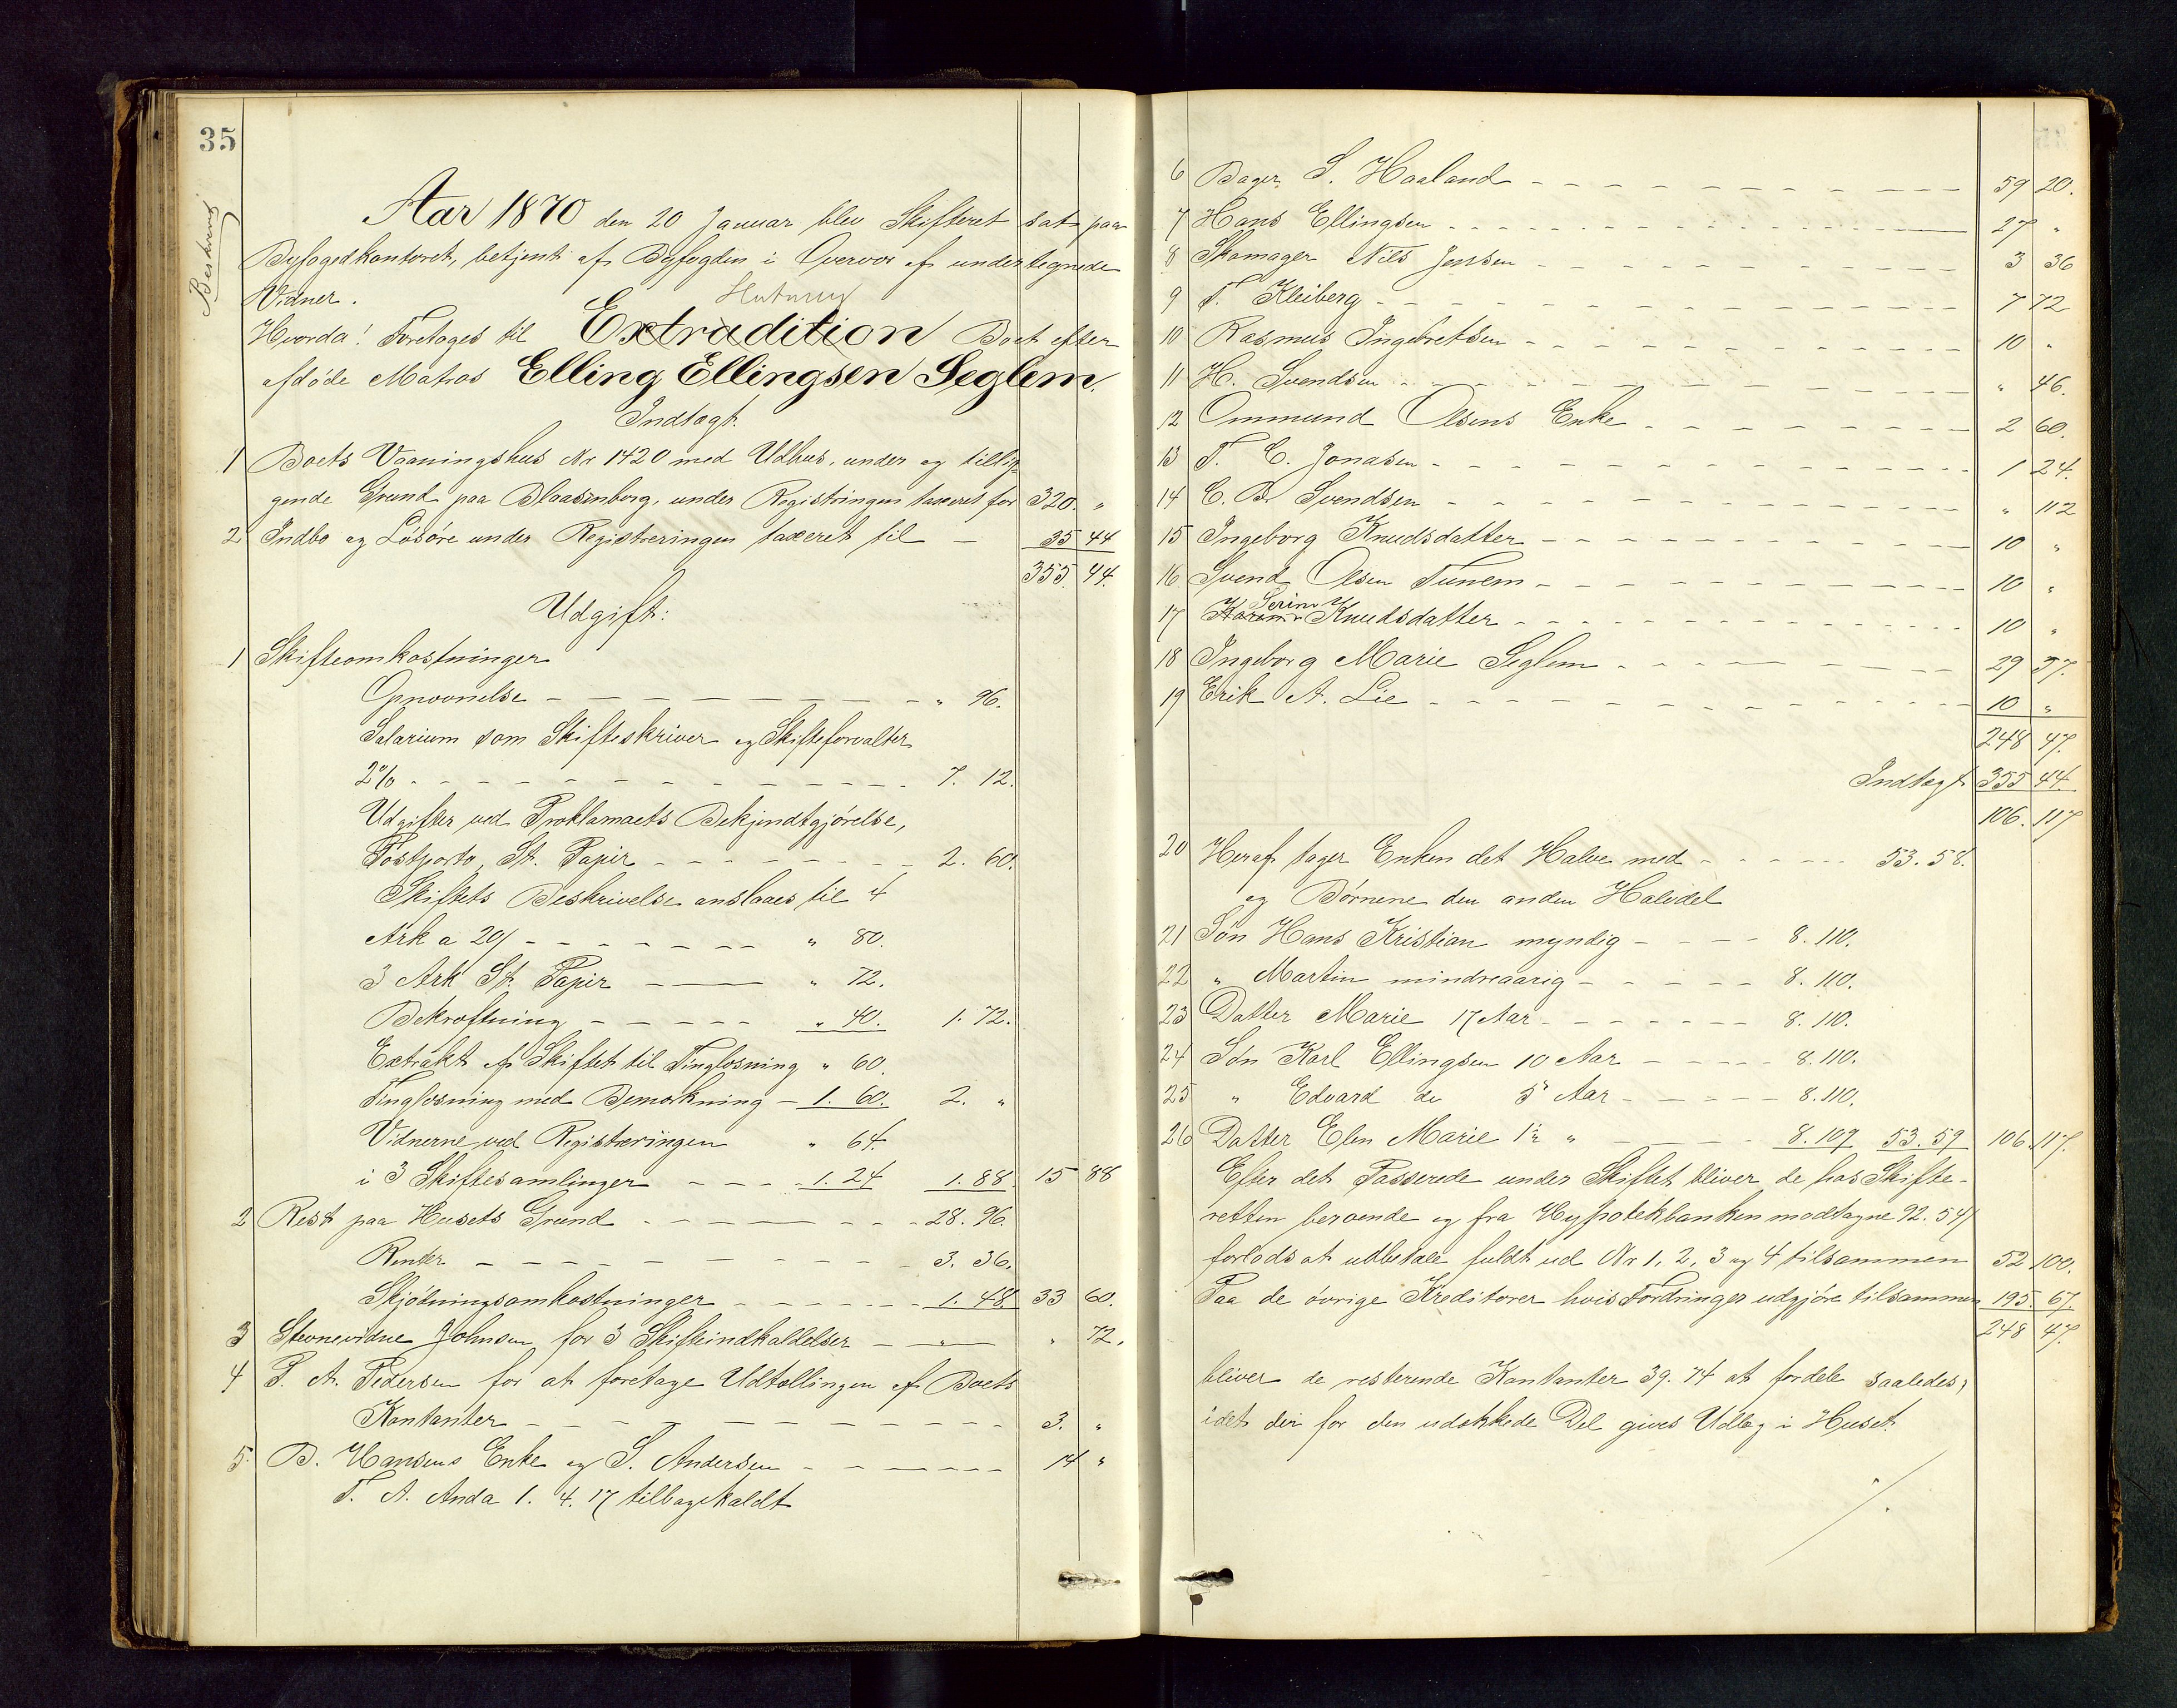 35
Beskrevet
Aar 1870 den 20 Januar blev Skifteret sat paa
Byfogedkontoret, betjent af Byfogden i Overvær af undertegnede
Vidner.
Slutning
Hvorda! Foretages til Extradition Boet efter
afdøde Matros Elling Ellingsen Seglem.
Indtægt.
1 Boets Vaaningshus Nr 1420 med Udhus, under og tillig-
gende Grund paa Blaasenborg, under Registringen taxeret for 320. "
2 Indbo og Løsøre under Registreringen taxeret til — 35 44
355. 44.
Udgift:
1 Skifteomkostninger
Opnævnelse — " 96.
Salarium som Skifteskriver og Skifteforvalter
2% - 7. 12.
Udgifter ved Proklamaets Bekjendtgjørelse,
Postporto, St. Papir - 2. 60.
Skiftets Beskrivelse anslaaes til 4
Ark a 20/ - " 80.
3 Ark St. Papir — " 72.
Bekræftning - " 40. 1. 72.
Extrakt af Skiftet til Tinglæsning " 60.
Tinglæsning med Bemærkning - 1. 60. 2. "
Vidnerne ved Registreringen " 64.
i 3 Skiftesamlinger - 1. 24 1. 88. 15 88
2 Rest paa Husets Grund - 28. 96.
Renter - 3. 36.
Skjødningsomkostninger - 1. 48. 33 60.
3 Stevnevidne Johnsen for 3 Skifteindkaldelser - " " 72.
4 P. A. Pedersen for at foretage Udtællingen af Boets
Kontanter - 3. "
5. B. Hansens Enke og S. Andersen - 14 "
T. A. Anda 1. 4. 17 tilbagekaldt
6 Bager S. Haaland - 59 20.
7 Hans Ellingsen - 27 "
8 Skomager Nils Jensen - 3 36
9 T. Kleiberg - 7 72
10 Rasmus Ingebretsen - 10 "
11 H. Svendsen - " 46.
12 Ommund Olsens Enke - 2 60.
13 T. C. Jonasen - 1 24.
14 C. B. Svendsen - " 112
15 Ingeborg Knudsdatter - 10 "
16 Svend Olsen Tunem - 10 "
Serine
17 Knudsdatter - 10 "
18 Ingeborg Marie Seglem - 29 37.
19 Erik A. Lie - 10 "
248 47.
Indtægt 355 44.
106. 117
20 Heraf tager Enken det Halve med - 53. 58.
og Børnene den anden Halvdel
21 Søn Hans Kristian myndig - 8. 110.
22 " Martin mindreaarig - 8. 110.
23 Datter Marie 17 Aar - 8. 110.
24 Søn Karl Ellingsen 10 Aar - 8. 110.
25 " Edvard do 5 Aar - 8. 110.
26 Datter Elen Marie 1½ " - 8. 109 53. 59 106. 117.
Efter det Passerede under Skiftet bliver de hos Skifte-
retten beroende og fra Hypotekbanken modtagne 92. 54/
forlods at udbetale fuldt ud Nr 1, 2, 3 og 4 tilsammen 52 100.
Paa de øvrige Kreditorer hvis Fordringer udgjøre tilsammen 195. 67.
248 47.
bliver de resterende Kontanter 39. 74 at fordele saaledes,
idet der for den udækkede Del gives Udlæg i Huset.